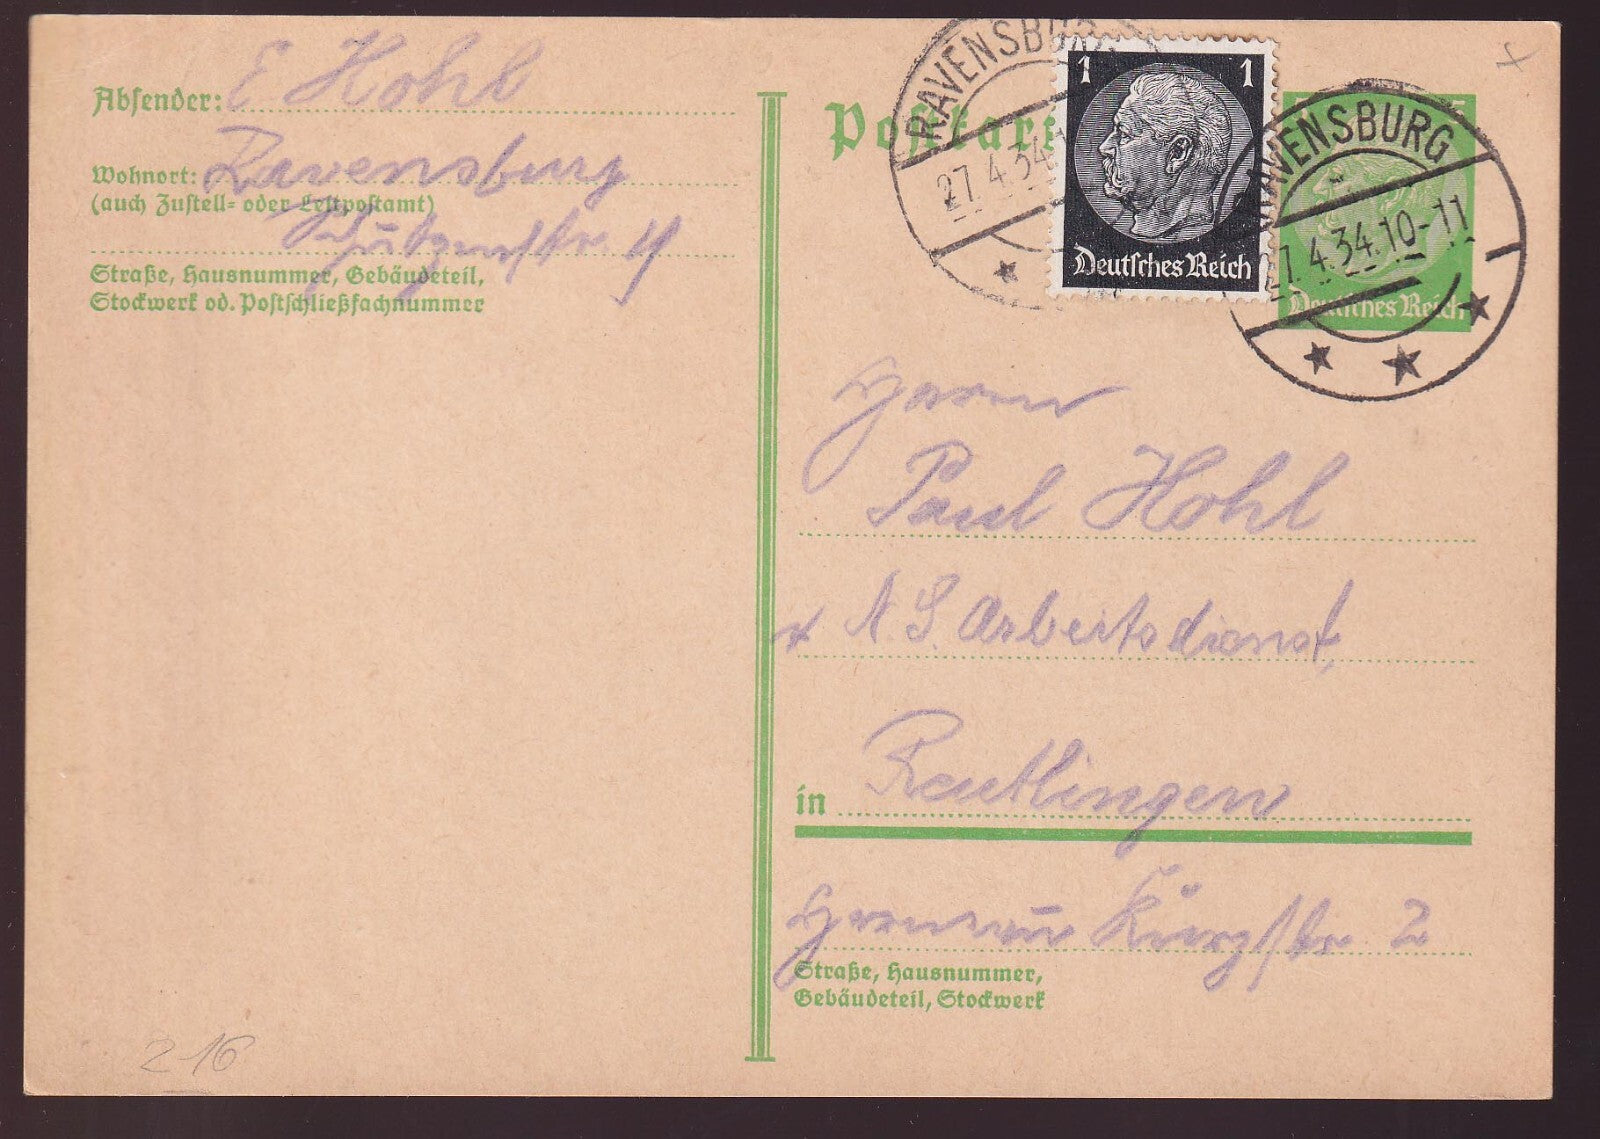 Absender: E Hohl
Wohnort: Ravensburg
(auch Zustell= oder Leitpostamt)
Schützenstr. 19
Straße, Hausnummer, Gebäudeteil,
Stockwerk od. Postschließfachnummer
Postkarte
RAVENSBURG
27.4.34
1 1
Deutsches Reich
RAVENSBURG
27.4.34.10-11
5
Deutsches Reich
Herrn
Paul Hohl
N. S. Arbeitsdienst,
in Reutlingen
Straße, Hausnummer,
Gebäudeteil, Stockwerk
2-16